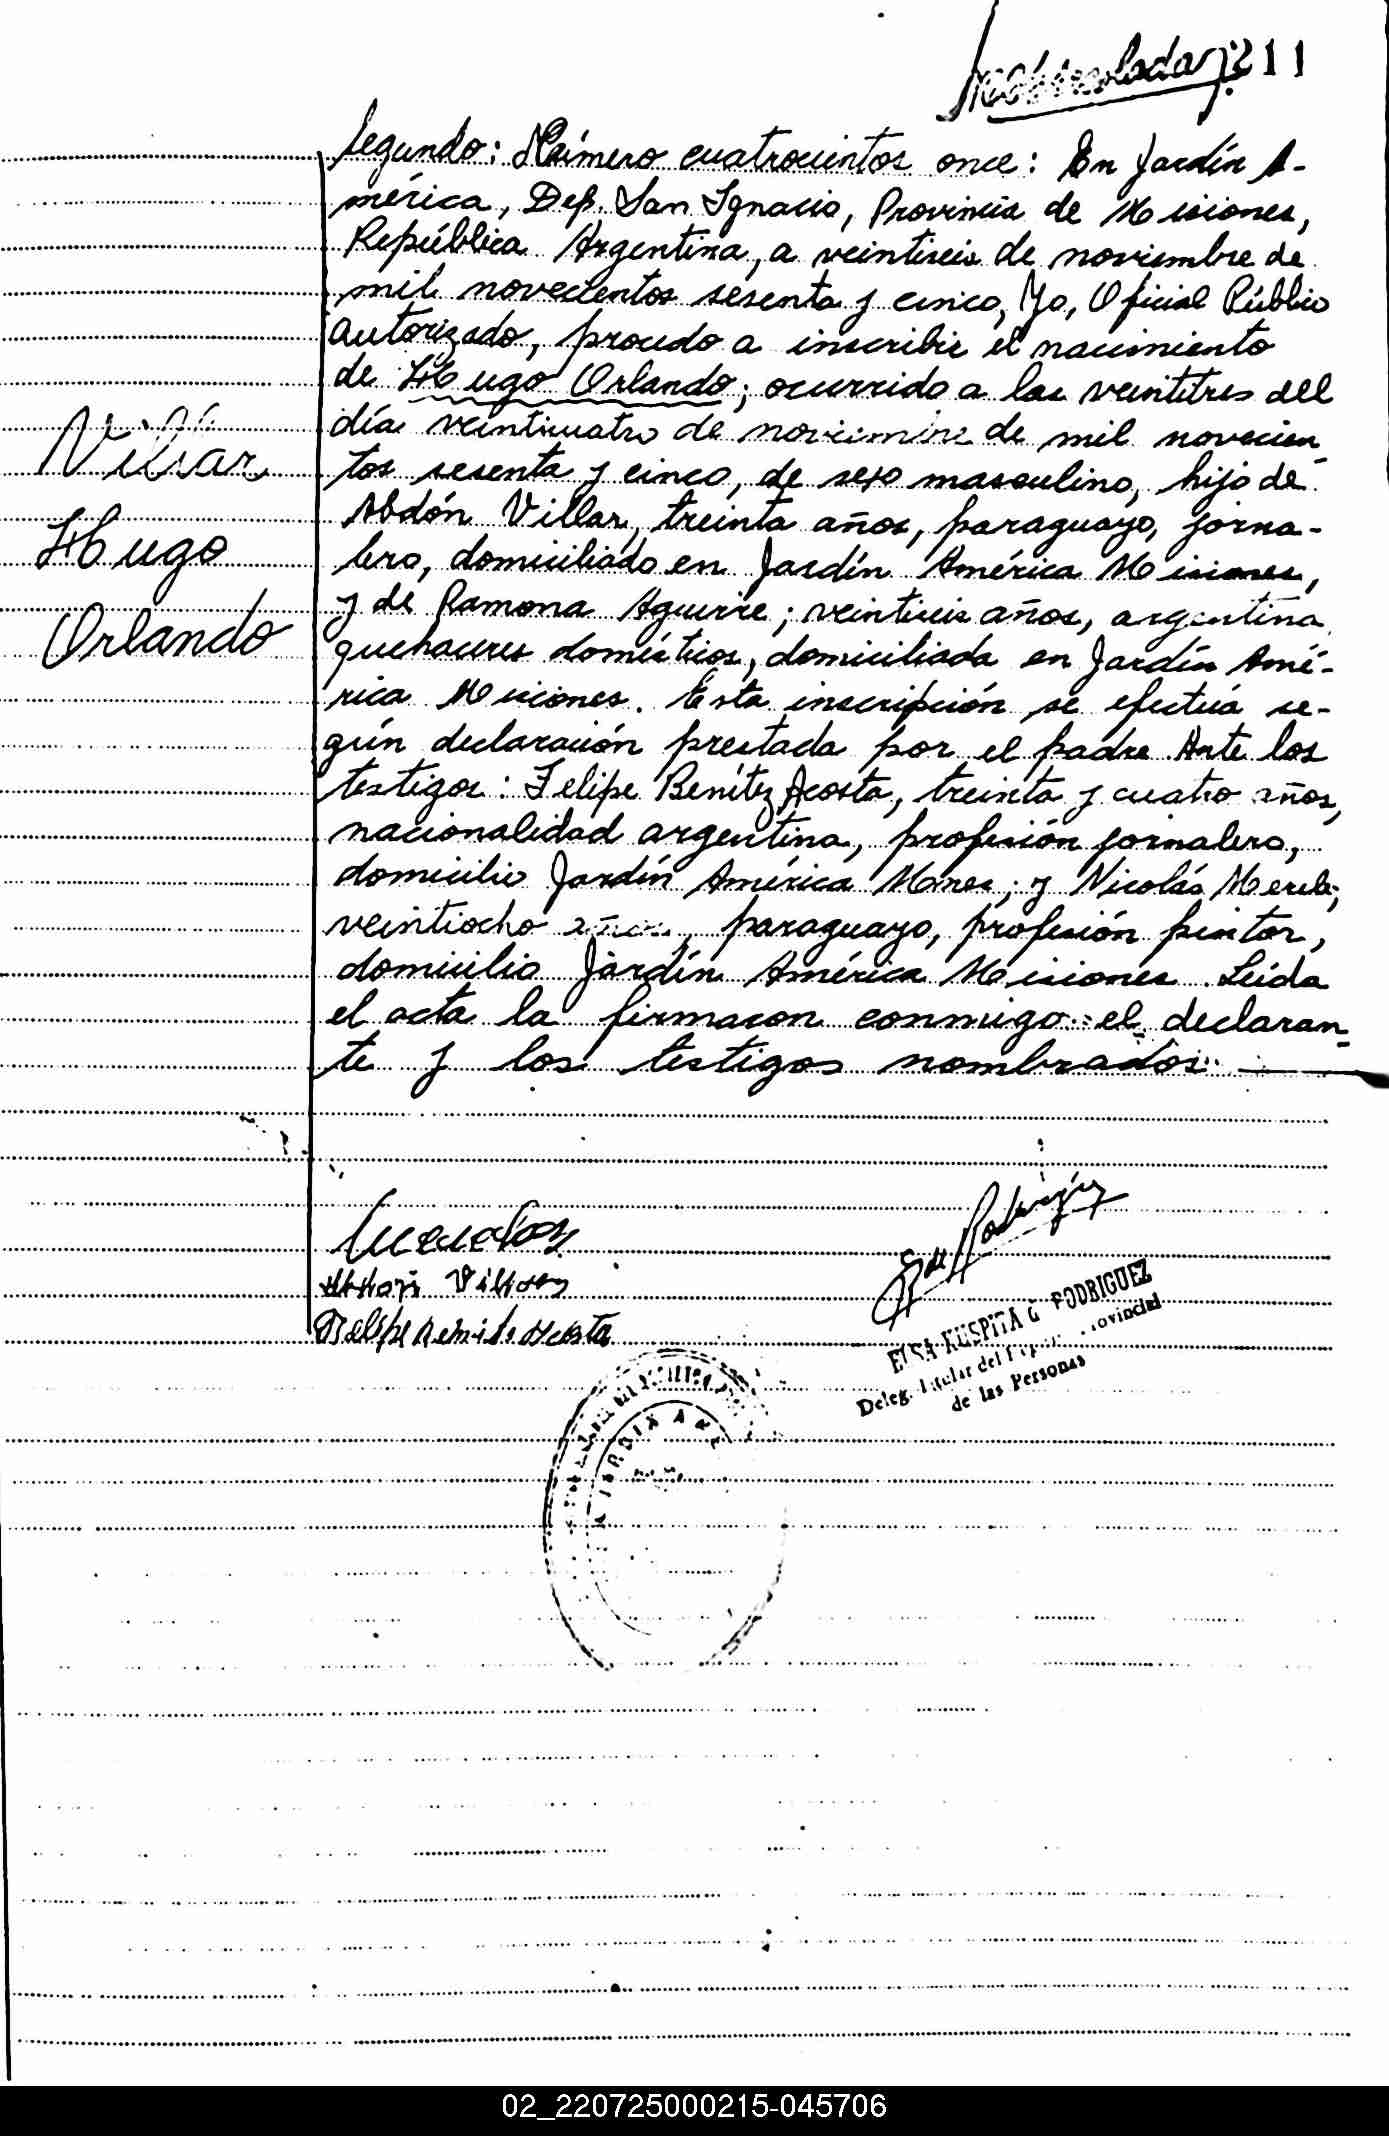 211
Segundo: Número cuatrocientos once: En Jardín A-
mérica, Dep. San Ignacio, Provincia de Misiones,
República Argentina, a veintiseis de noviembre de
mil novecientos sesenta y cinco, Yo, Oficial Público
autorizado, procedo a inscribir el nacimiento
de Hugo Orlando; ocurrido a las veintitres del
día veinticuatro de noviembre de mil novecien-
tos sesenta y cinco, de sexo masculino, hijo de
Abdón Villar, treinta años, paraguayo, jorna-
lero, domiciliado en Jardín América Misiones,
y de Ramona Aguirre; veintiseis años, argentina
quehaceres domésticos, domiciliada en Jardín Amé-
rica Misiones. Esta inscripción se efectúa se-
gún declaración prestada por el padre. Ante los
testigos: Felipe Benítez Acosta, treinta y cuatro años,
nacionalidad argentina, profesión jornalero,
domicilio Jardín América Mnes; y Nicolás
veintiocho años, paraguayo, profesión pintor,
domicilio Jardín América Misiones. Leída
el acta la firmaron conmigo el declaran-
te y los testigos nombrados.
Villar
Hugo
Orlando
Villar
Felipe Acosta
E. de Rodríguez
ELSA G RODRIGUEZ
Deleg. Titular del Provincial
de las Personas
JARDIN AME
02_220725000215-045706